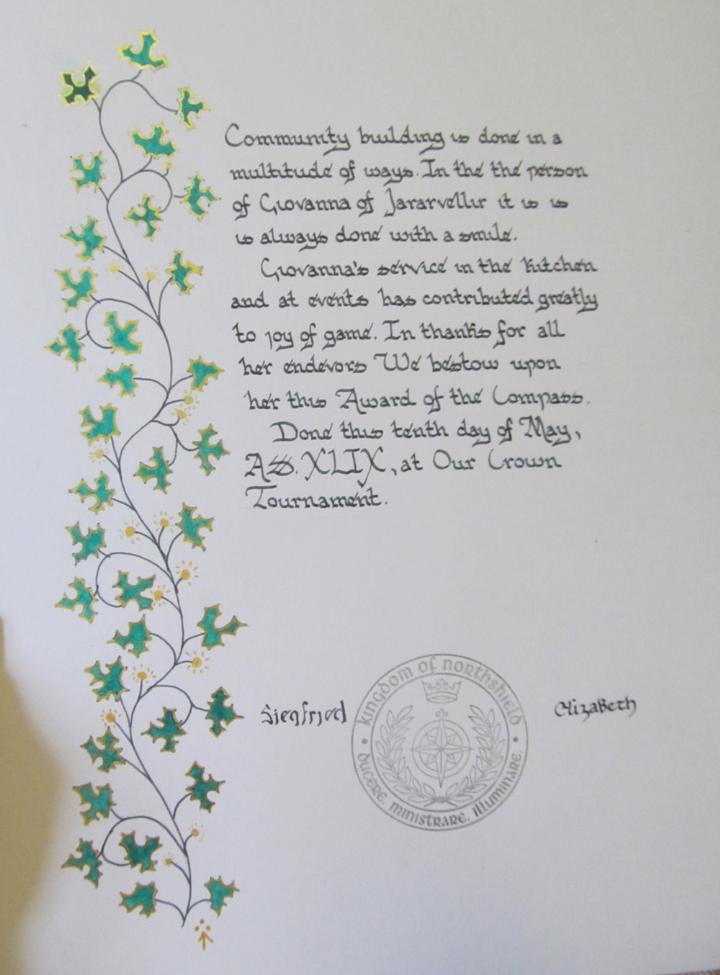 Community building is done in a
multitude of ways. In the the person
of Giovanna of Jararvellir it is is
is always done with a smile.
Giovanna's service in the Kitchen
and at events has contributed greatly
to joy of game. In thanks for all
her endevors We bestow upon
her this Award of the Compass.
Done this tenth day of May,
ASS. XLIX, at Our Crown
Tournament.
Siegfried
KINGDOM OF NORTHSHIELD
DUCERE, MINISTRARE, ILLUMINARE.
Elizabeth